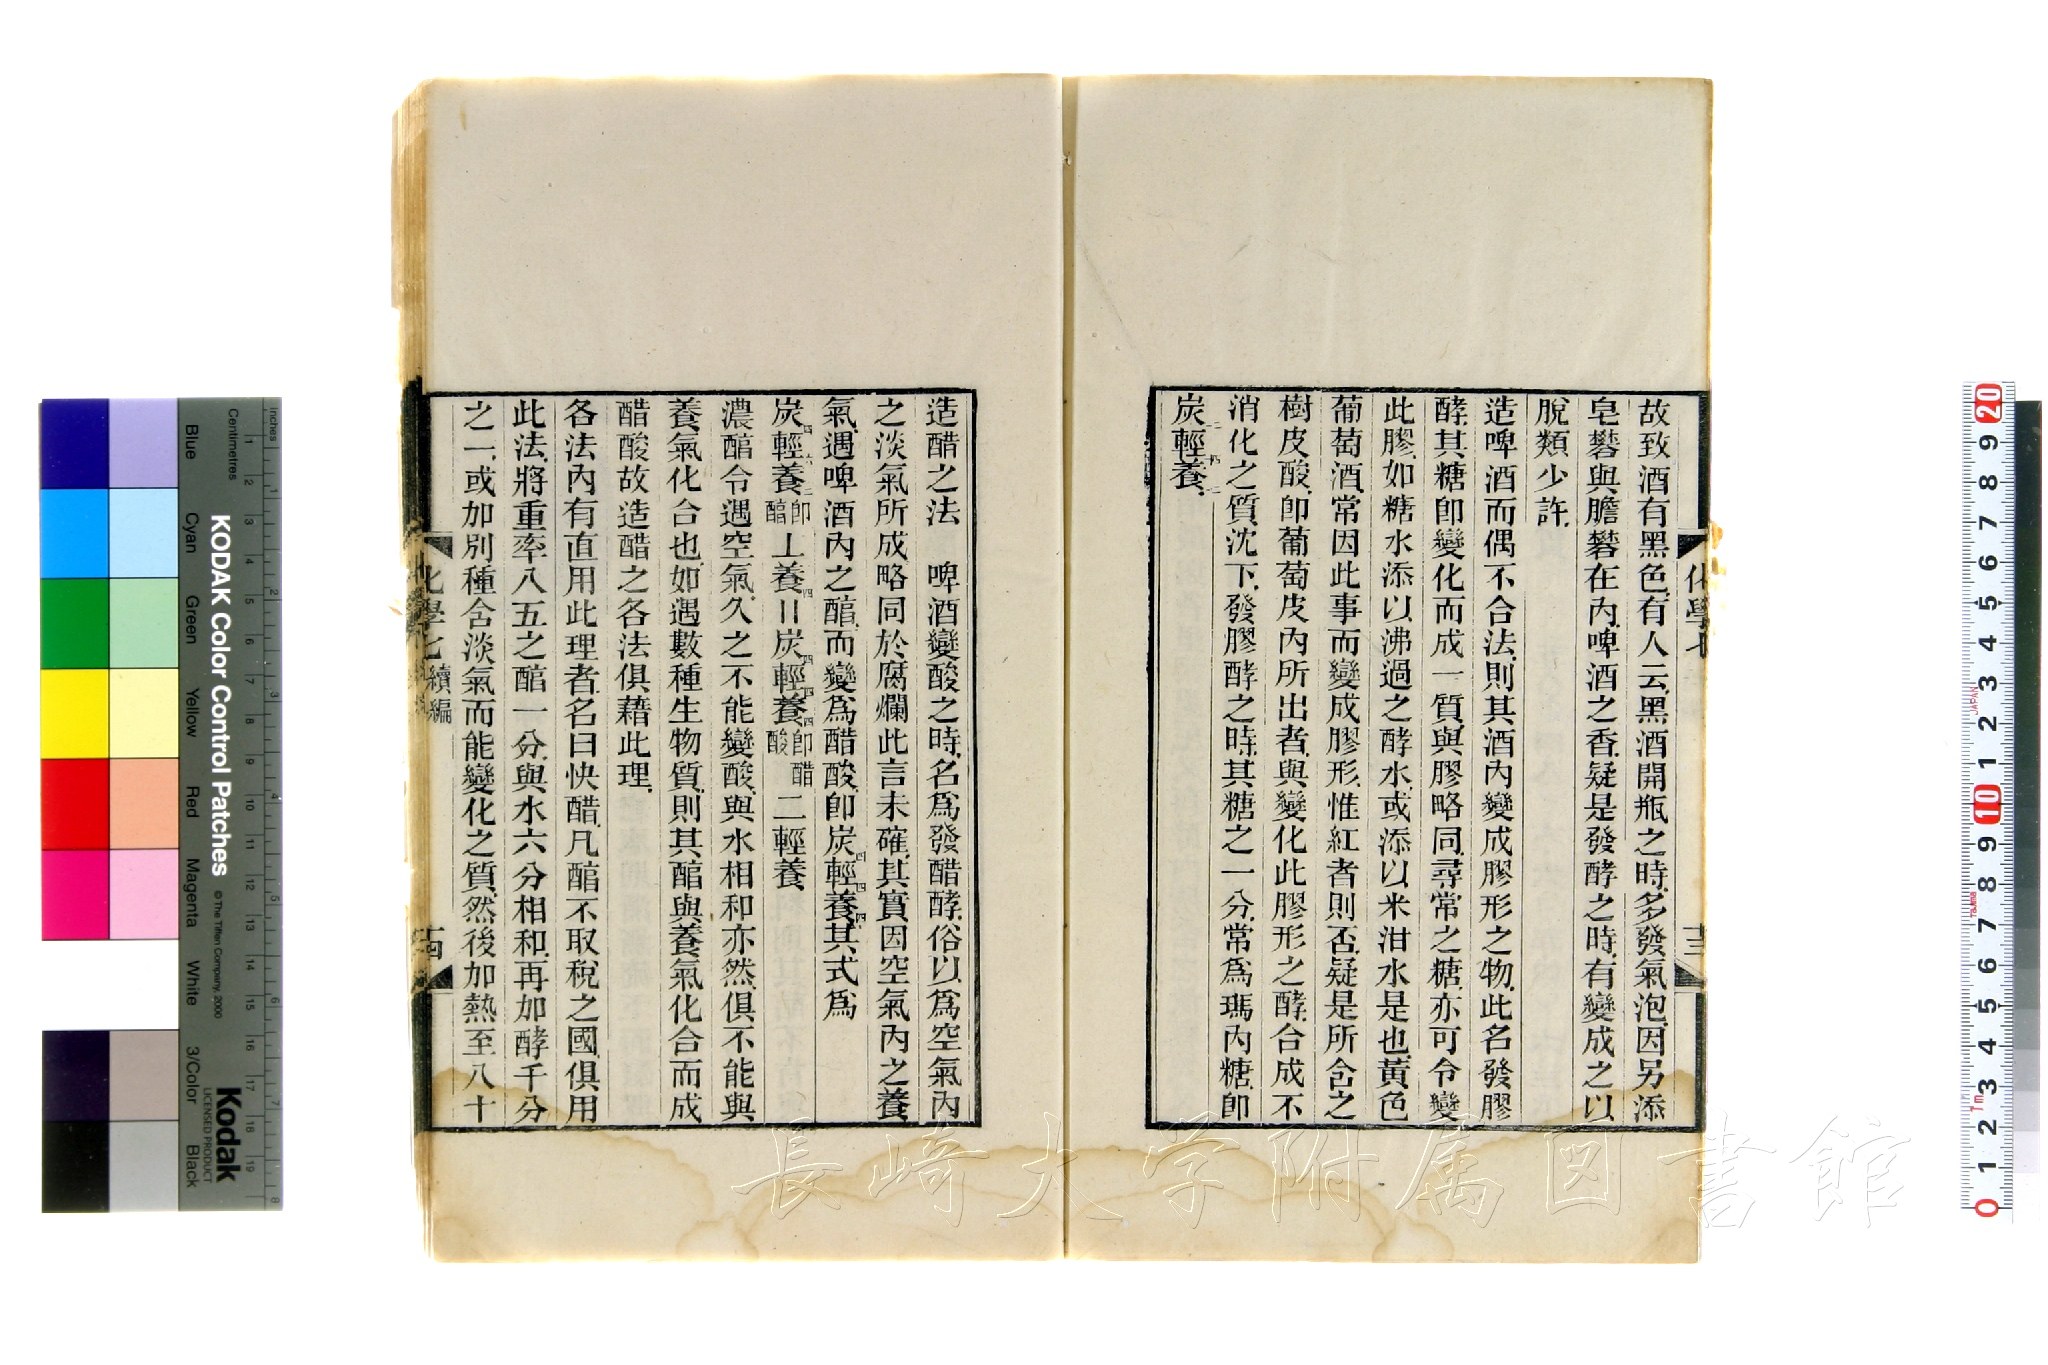 故致酒有黑色有人云黑酒開瓶之時多發氣泡因另添
皂礬與膽礬在內啤酒之香疑是發酵之時有變成之以
脫類少許
造啤酒而偶不合法則其酒內變成膠形之物此名發膠
酵其糖卽變化而成一質與膠略同尋常之糖亦可令變
此膠如糖水添以沸過之酵水或添以米泔水是也黃色
葡萄酒常因此事而變成膠形惟紅者則否疑是所含之
樹皮酸卽葡萄皮內所出者與變化此膠形之酵合成不
消化之質沈下發膠酵之時其糖之一分常爲瑪內糖卽
炭輕養
化學七
十三
造醋之法 啤酒變酸之時名爲發醋酵俗以爲空氣內
之淡氣所成略同於腐爛此言未確其實因空氣內之養
氣遇啤酒內之醕而變爲醋酸卽炭四輕四養四其式爲
炭四輕六養二卽醕⊥養四=炭四輕四養四卽醋酸二輕養
濃醕令遇空氣久之不能變酸與水相和亦然俱不能與
養氣化合也如遇數種生物質則其醕與養氣化合而成
醋酸故造醋之各法俱藉此理
各法內有直用此理者名曰快醋凡醕不取稅之國俱用
此法將重率八五之醕一分與水六分相和再加酵千分
之一或加別種含淡氣而能變化之質然後加熱至八十
化學七 續編
十四
KODAK Color Control Patches
© The Tiffen Company, 2000
Kodak
LICENSED PRODUCT
Inches
Centimetres
Blue
Cyan
Green
Yellow
Red
Magenta
White
3/Color
Black
長崎大学附属図書館